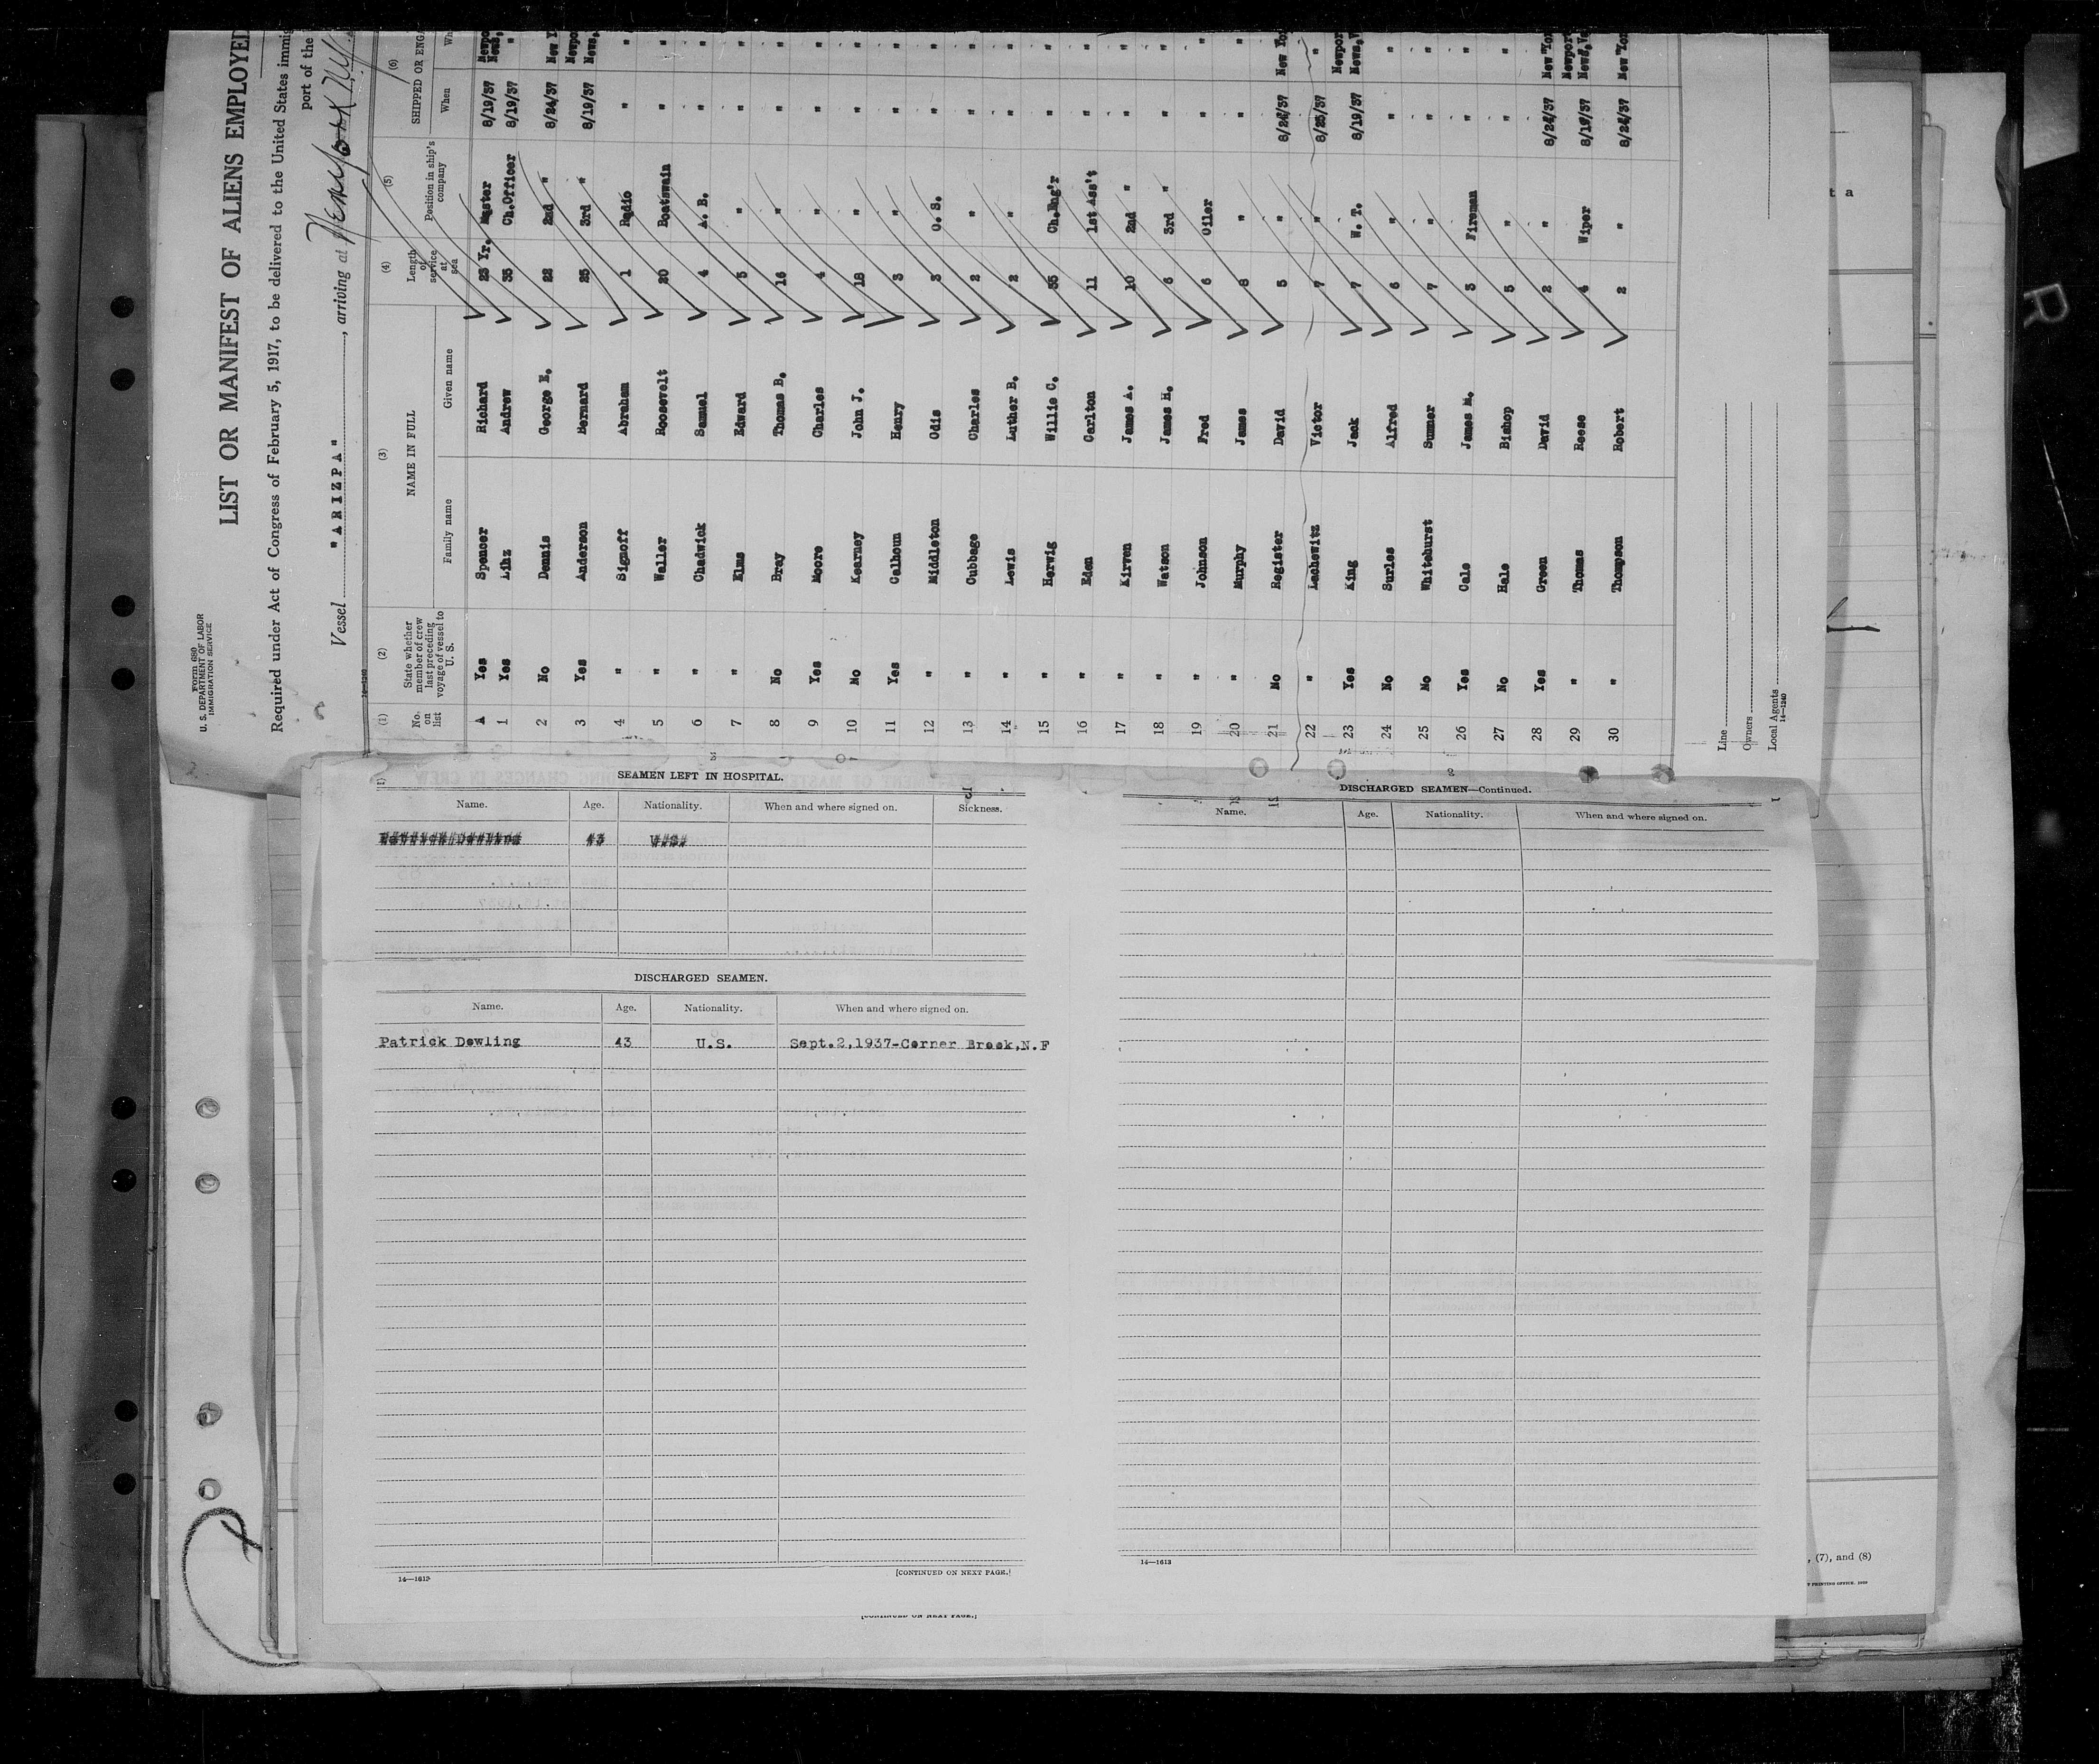 Form 680
U. S. DEPARTMENT OF LABOR
IMMIGRATION SERVICE
LIST OR MANIFEST OF ALIENS EMPLOYED
Required under Act of Congress of February 5, 1917, to be delivered to the United States immig
Vessel "ARIZPA", arriving at New York N.Y. port of the
(1) (2) (3) (4) (5) (6)
No. on list State whether member of crew last preceding voyage of vessel to U. S. NAME IN FULL Length of service at sea Position in ship's company SHIPPED OR ENGA
Family name Given name When Wh
A Yes Spencer Richard 23 Yr. Master 8/19/37 Newpo News,
1 Yes Lihz Andrew 35 Ch.Officer 8/19/37 "
2 No Dennis George E. 22 2nd " 8/24/37 New Y
3 Yes Anderson Bernard 25 3rd " 8/19/37 Newpo News,
4 " Signoff Abraham 1 Radio " "
5 " Waller Roosevelt 20 Boatswain " "
6 " Chadwick Samuel 4 A. B. " "
7 " Elms Edward 3 " " "
8 No Bray Thomas B. 16 " " "
9 Yes Moore Charles 4 " " "
10 No Kearney John J. 18 " " "
11 Yes Calhoun Henry 3 " " "
12 " Middleton Odis 3 O. S. " "
13 " Cubbage Charles 2 " " "
14 " Lewis Luther B. 2 " " "
15 " Herwig Willie C. 35 Ch.Eng'r " "
16 " Eden Carlton 11 1st Ass't " "
17 " Kirven James A. 10 2nd " " "
18 " Watson James H. 6 3rd " " "
19 " Johnson Fred 6 Oiler " "
20 " Murphy James 8 " " "
21 No Register David 5 " 8/24/37 New Yor
22 " Lachewitz Victor 7 " 8/25/37 "
23 Yes King Jack 7 W. T. 8/19/37 Newpor News,V
24 No Surles Alfred 6 " " "
25 No Whitehurst Sumner 7 " " "
26 Yes Cale James M. 3 Fireman " "
27 No Hale Bishop 5 " " "
28 Yes Green David 2 " 8/24/37 New Yor
29 " Thomas Reese 4 Wiper 8/19/37 Newpor News,Va
30 " Thompson Robert 2 " 8/24/37 New Yor
Line
Owners
Local Agents
14—1240
SEAMEN LEFT IN HOSPITAL.
Name. Age. Nationality. When and where signed on. Sickness.
DISCHARGED SEAMEN.
Name. Age. Nationality. When and where signed on.
Patrick Dowling 43 U.S. Sept.2,1937-Corner Brook,N.F
14—1613
[CONTINUED ON NEXT PAGE.]
[CONTINUED ON NEXT PAGE.]
DISCHARGED SEAMEN—Continued.
Name. Age. Nationality. When and where signed on.
14—1613
, (7), and (8)